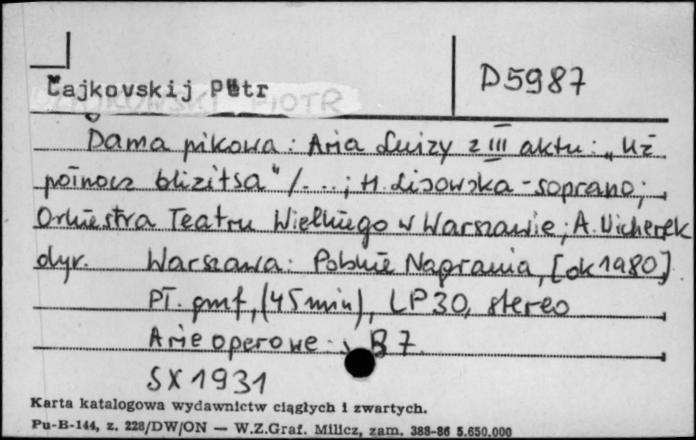 Čajkovskij Pëtr
D5987
Dama pikowa : Aria Luizy z III aktu : „Uż
połnocz blizitsa" / ... ; H. Lisowska - soprano ;
Orkiestra Teatru Wielkiego w Warszawie ; A. Wicherek
dyr. Warszawa : Polskie Nagrania, [ok 1980]
Pł. gmf, (45 min), LP30, stereo
Arie operowe : B 7.
SX 1931
Karta katalogowa wydawnictw ciągłych i zwartych.
Pu-B-144, z. 228/DW/ON — W.Z.Graf. Milicz, zam. 388-86 5.650.000